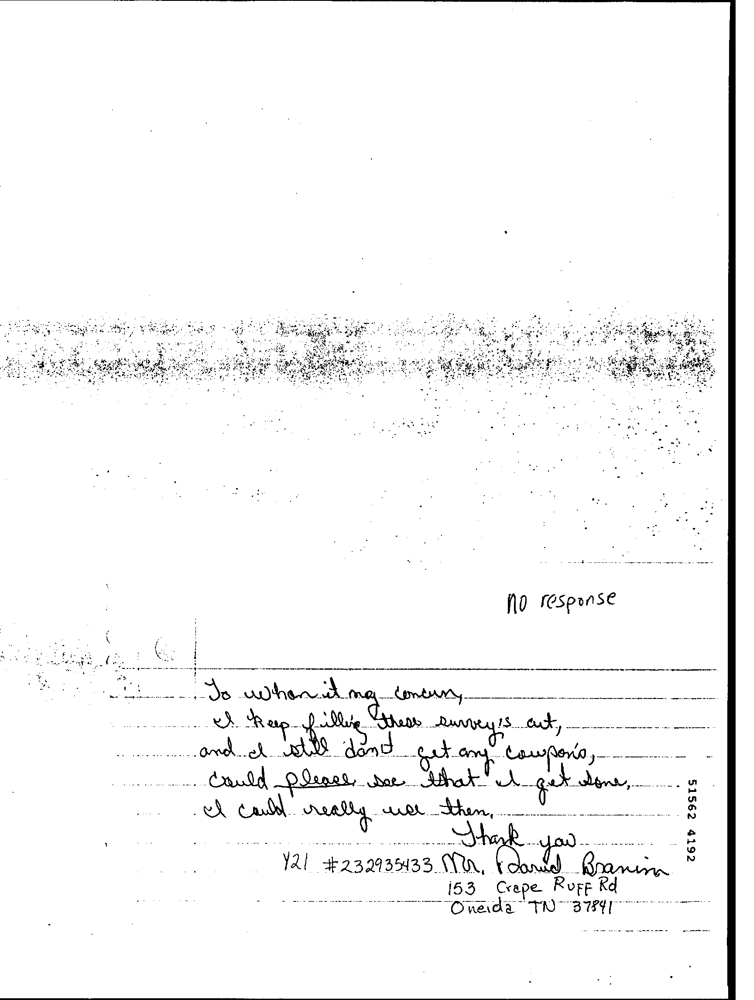 no response
To whom it may concern,
I keep filling these survey's out,
and I still don't get any coupon's,
Could please see that I get some,
I could really use them.
Thank you
Y21 #232935433 Mr. David
153 Crape Ruff Rd
Oneida TN 37841
51562 4192